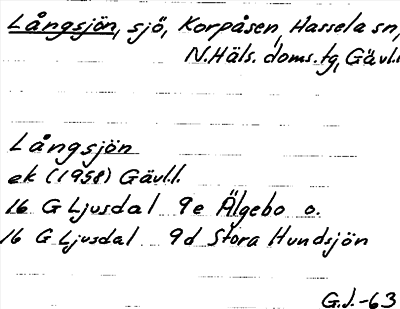 Långsjön, sjö, Korpåsen, Hassela sn,
N.Häls. doms.tg, Gävl.l
Långsjön
ek (1958) Gävl.l.
16 G Ljusdal 9e Älgebo o.
16 G Ljusdal 9d Stora Hundsjön
G.J.-63